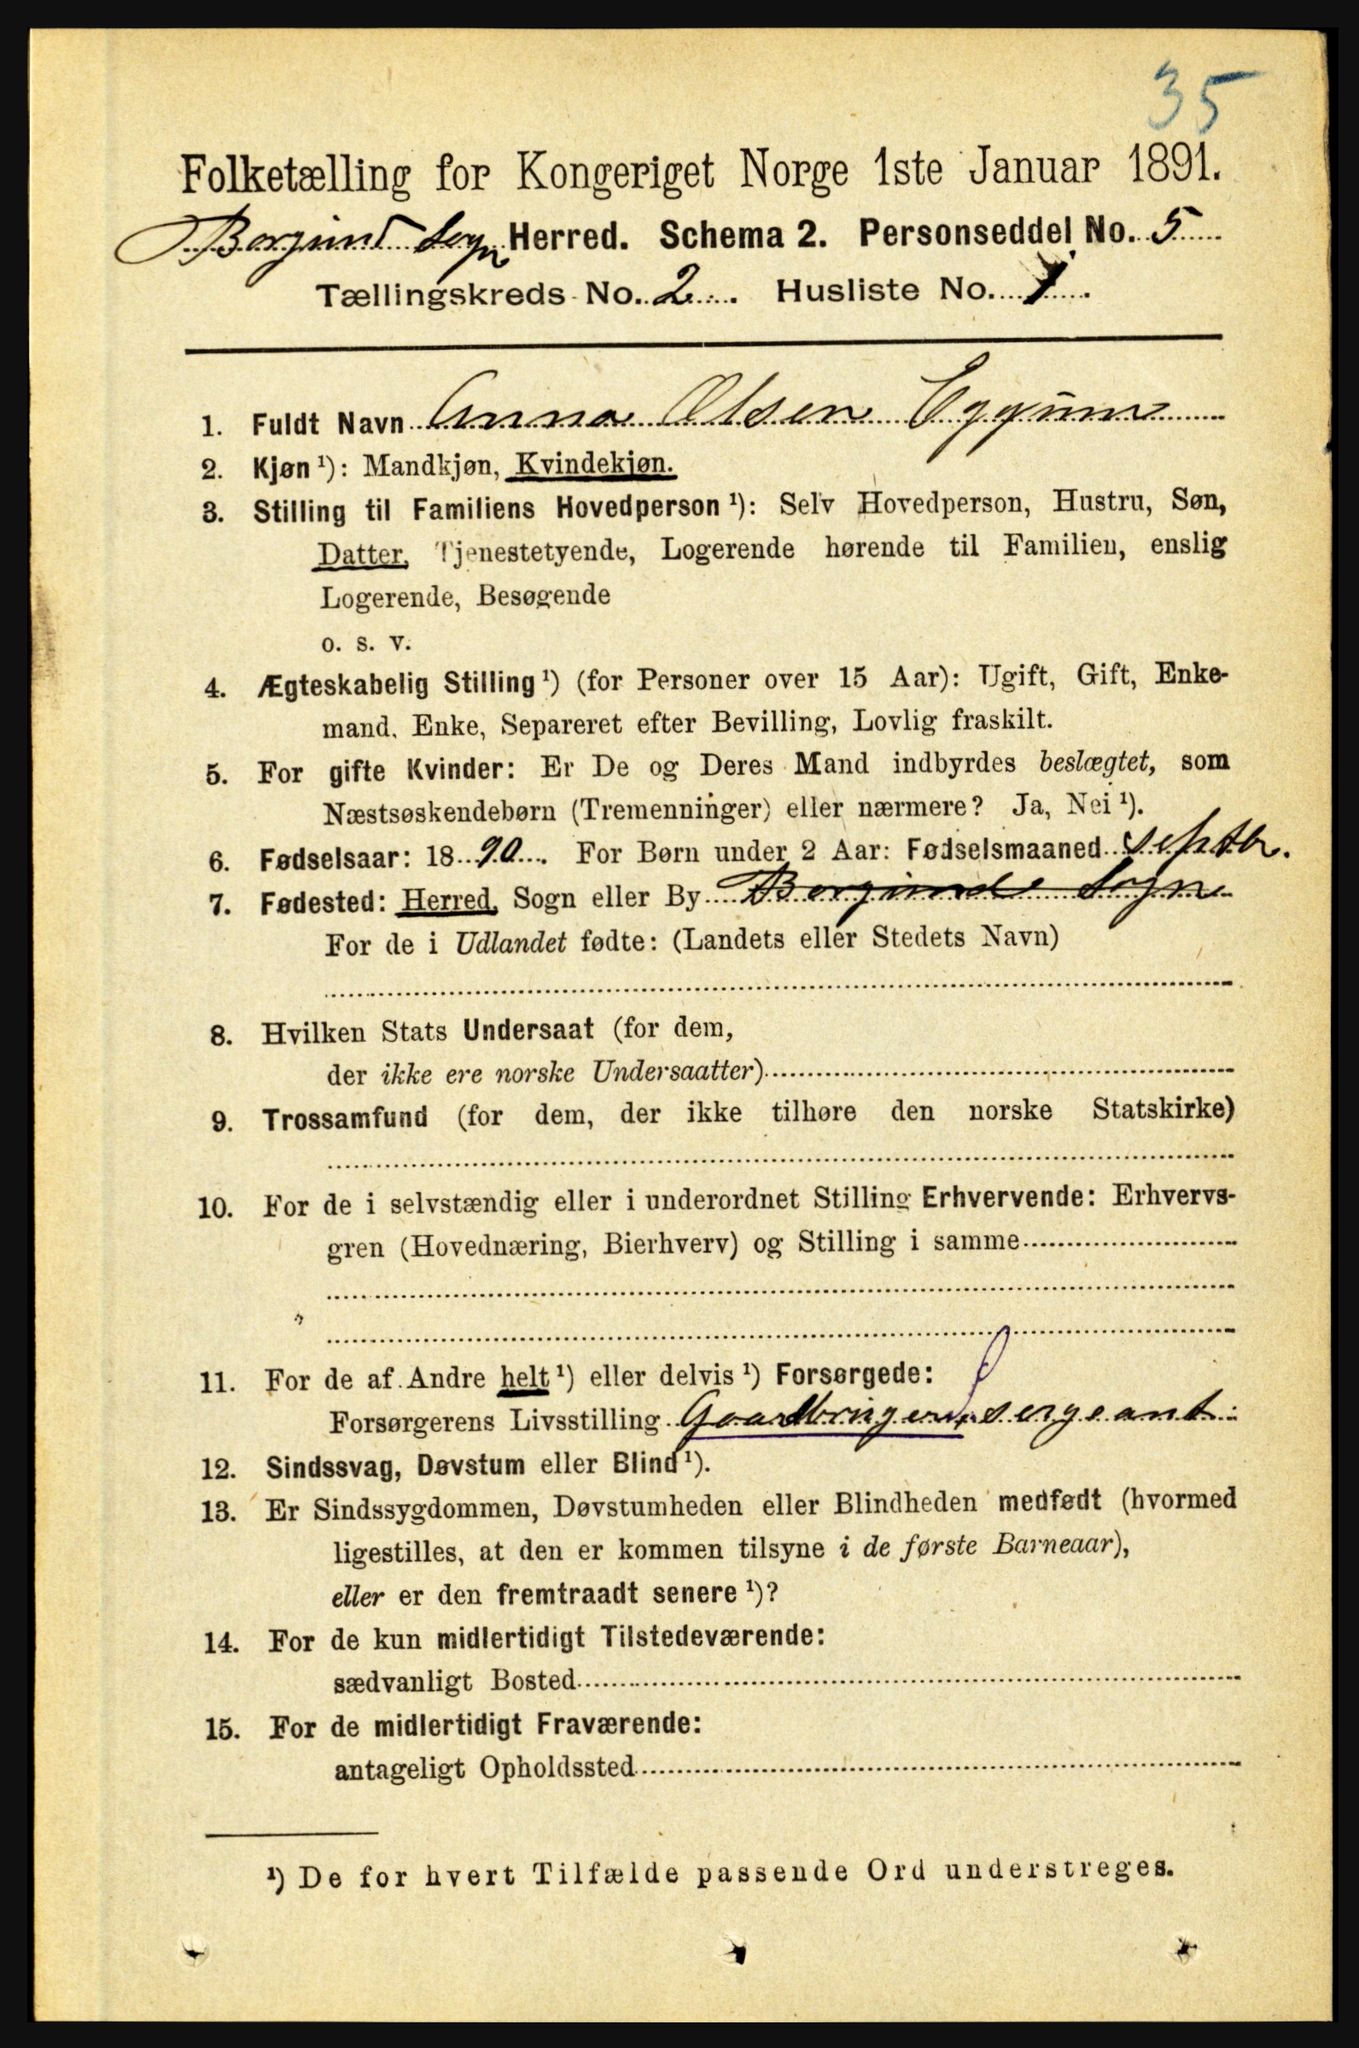 35
Folketælling for Kongeriget Norge 1ste Januar 1891.
Borgund Sogn Herred. Schema 2. Personseddel No. 5
Tællingskreds No. 2. Husliste No. 1.
1. Fuldt Navn Anna Olsen Eggum
2. Kjøn ¹): Mandkjøn, Kvindekjøn.
3. Stilling til Familiens Hovedperson ¹): Selv Hovedperson, Hustru, Søn,
Datter, Tjenestetyende, Logerende hørende til Familien, enslig
Logerende, Besøgende
o. s. v.
4. Ægteskabelig Stilling ¹) (for Personer over 15 Aar): Ugift, Gift, Enke-
mand, Enke, Separeret efter Bevilling, Lovlig fraskilt.
5. For gifte Kvinder: Er De og Deres Mand indbyrdes beslægtet, som
Næstsøskendebørn (Tremenninger) eller nærmere? Ja, Nei ¹).
6. Fødselsaar: 1890. For Børn under 2 Aar: Fødselsmaaned Septbr.
7. Fødested: Herred, Sogn eller By Borgund Sogn
For de i Udlandet fødte: (Landets eller Stedets Navn)
8. Hvilken Stats Undersaat (for dem,
der ikke ere norske Undersaatter)
9. Trossamfund (for dem, der ikke tilhøre den norske Statskirke)
10. For de i selvstændig eller i underordnet Stilling Erhvervende: Erhvervs-
gren (Hovednæring, Bierhverv) og Stilling i samme
11. For de af Andre helt ¹) eller delvis ¹) Forsørgede:
Forsørgerens Livsstilling Gaardbruger, sergeant.
12. Sindssvag, Døvstum eller Blind ¹).
13. Er Sindssygdommen, Døvstumheden eller Blindheden medfødt (hvormed
ligestilles, at den er kommen tilsyne i de første Barneaar),
eller er den fremtraadt senere ¹)?
14. For de kun midlertidigt Tilstedeværende:
sædvanligt Bosted
15. For de midlertidigt Fraværende:
antageligt Opholdssted
¹) De for hvert Tilfælde passende Ord understreges.